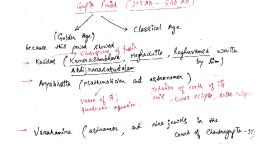 Gupta Period (319 AD - 540 AD)
(Golden Age) Classical Age.
because this period showed
Kalidas (Kumarasambhava, Meghadutta, Raghuvamsa written by him)
Abhijnanasakuntalam
Aryabhatta (Mathematician and astronomer)
Value of π, rotation of earth on its
quadratic equation. axis, lunar eclipse, solar eclipse
Varahamihira (astronomer and nine jewels in the
Court of Chandragupta-